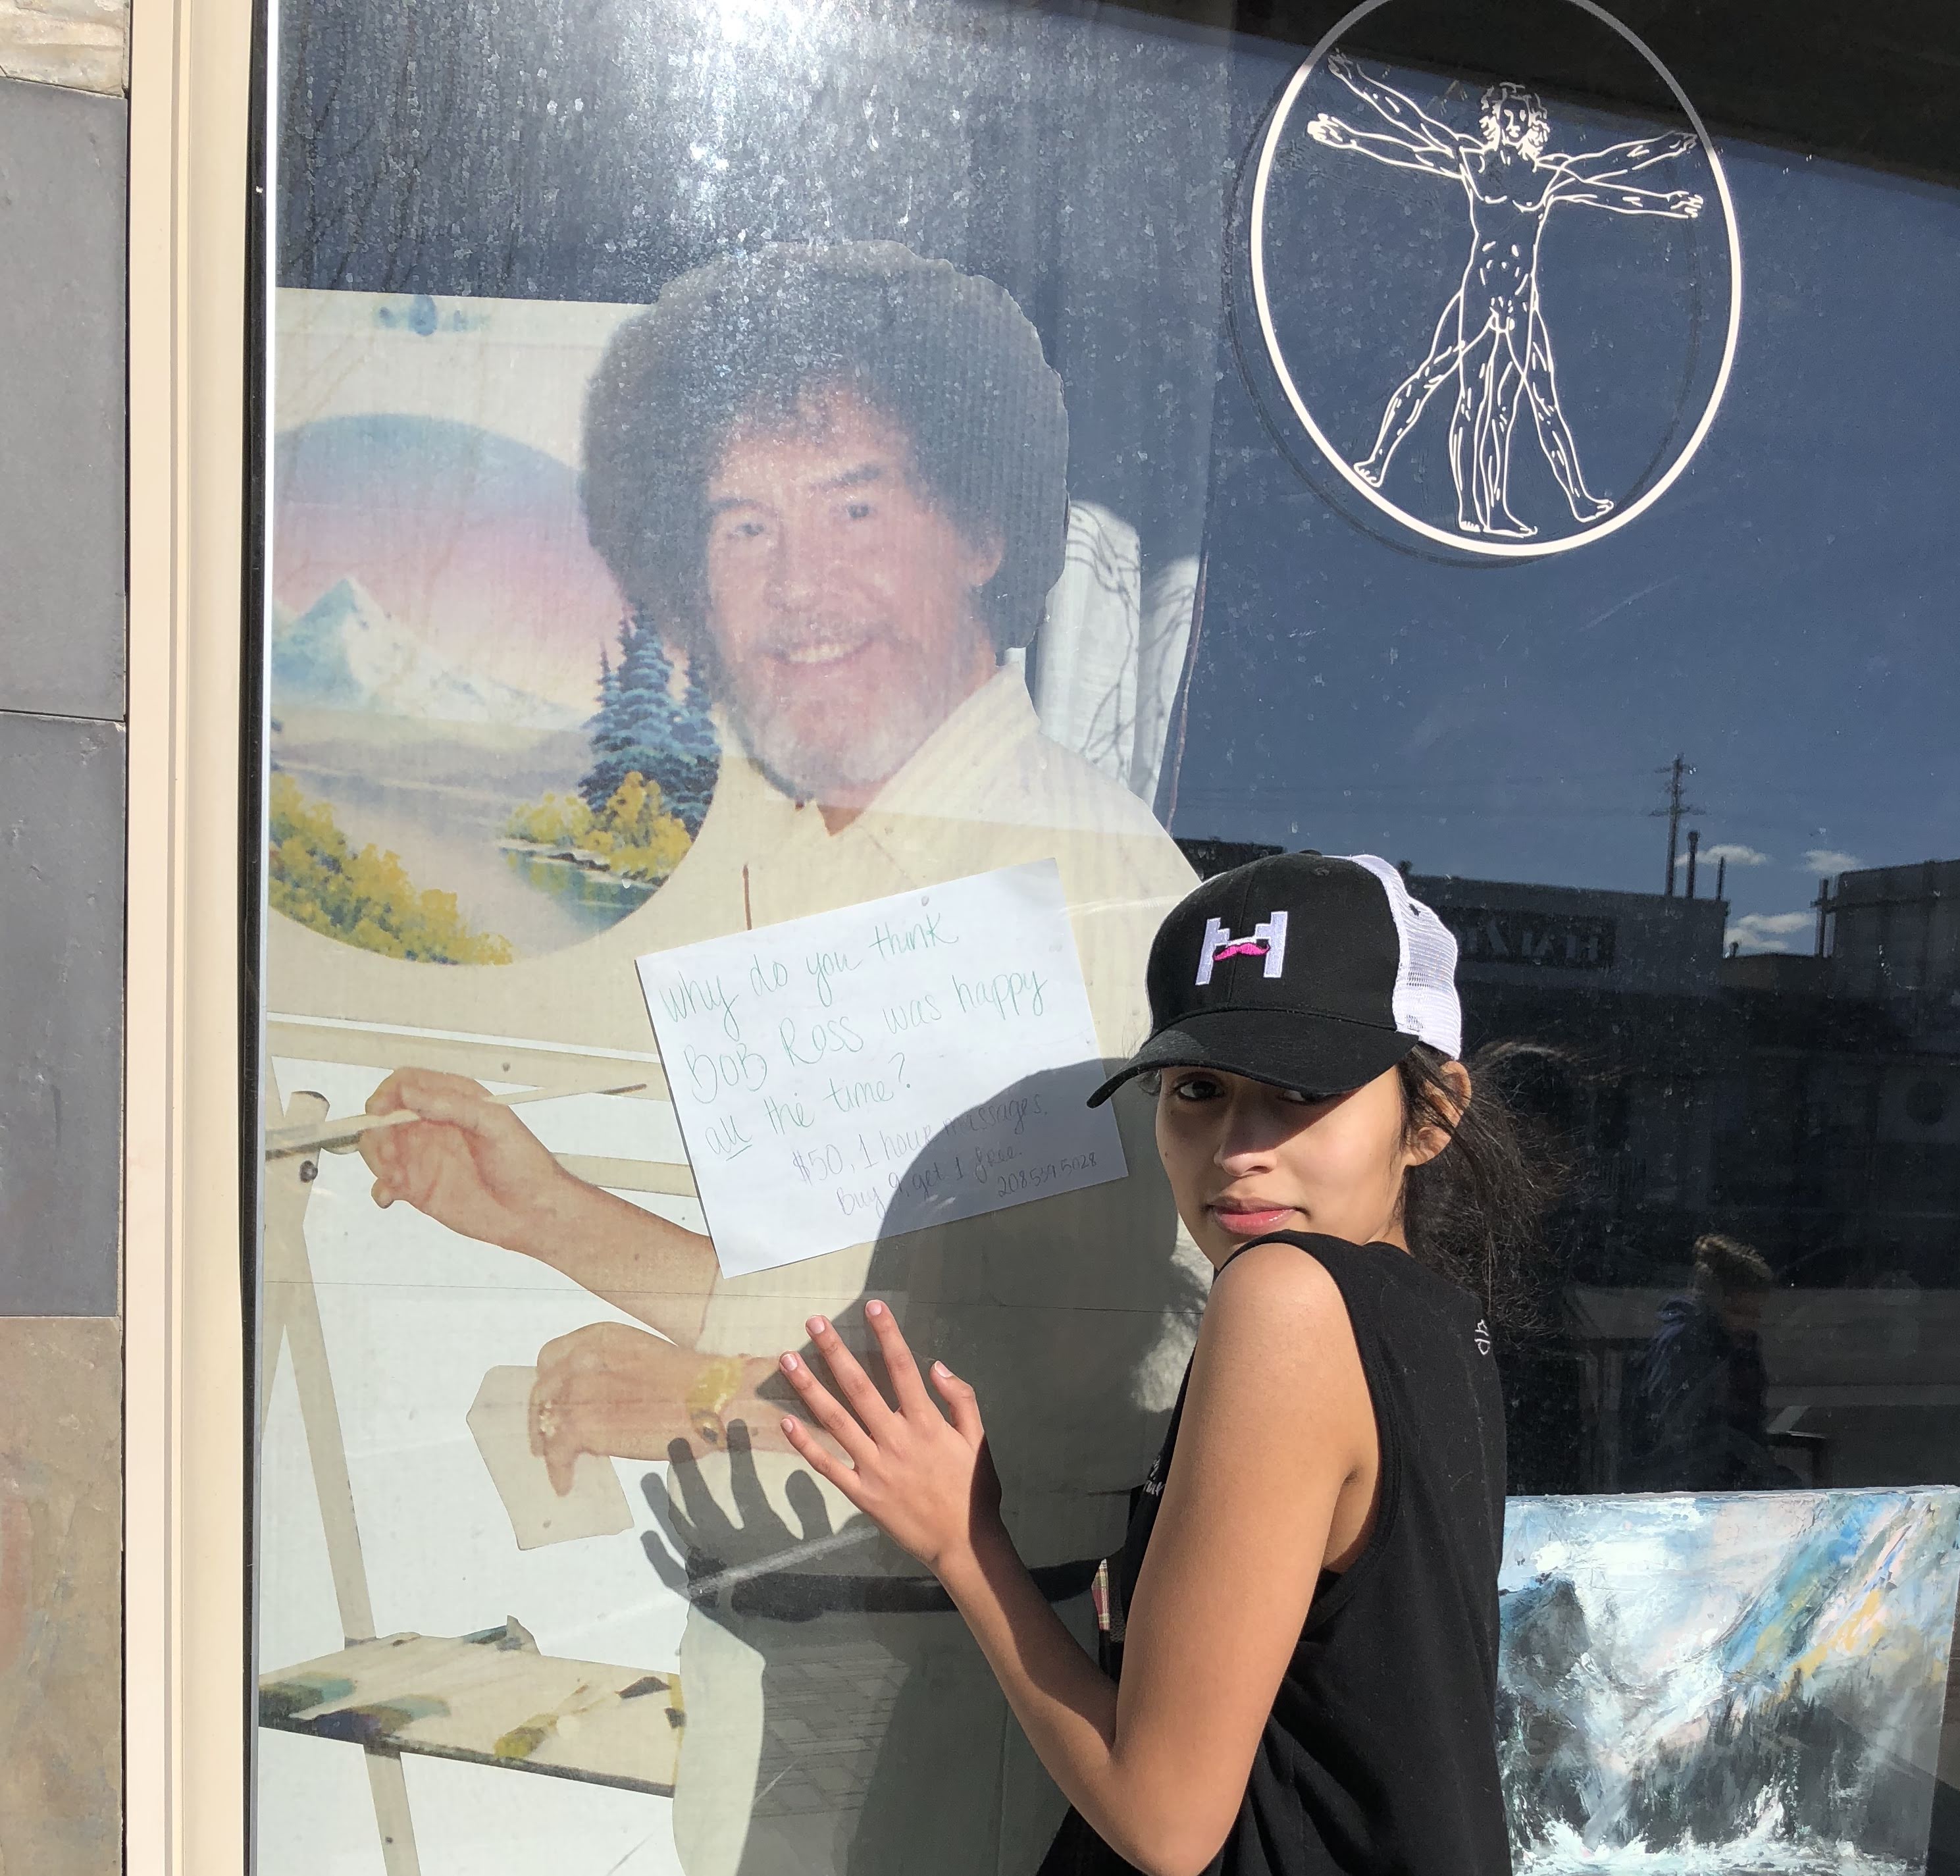 why do you think
BOB Ross was happy
all the time?
$50, 1 hour massages.
Buy 9, get 1 free.
208 539 5028
H